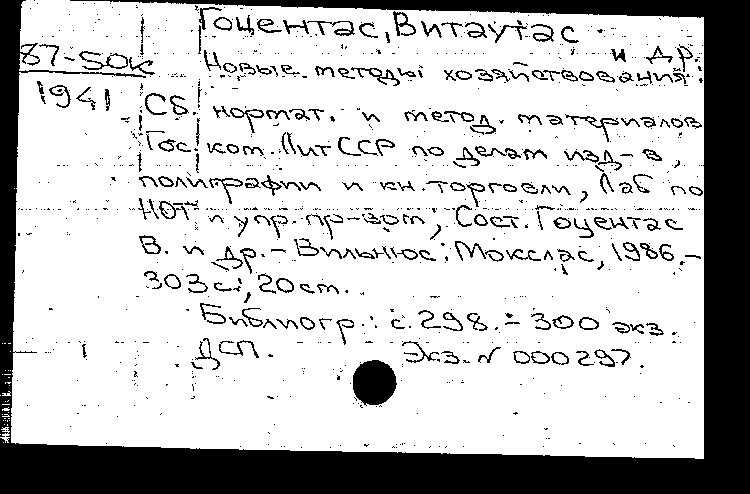 Гоцентас, Витаутас
и др.
87-50К
Новые методы хозяйствования:
1941
Сб. нормат. и метод. материалов
Гос. ком. Лит ССР по делам изд-в,
полиграфии и кн. торговли, Лаб по
НОТ и упр. пр-вом; Сост. Гоцентас
В. и др. - Вильнюс: Мокслас, 1986. -
303 с.; 20 см.
Библиогр.: с. 298. - 300 экз.
ДСП. Экз. N 000297.